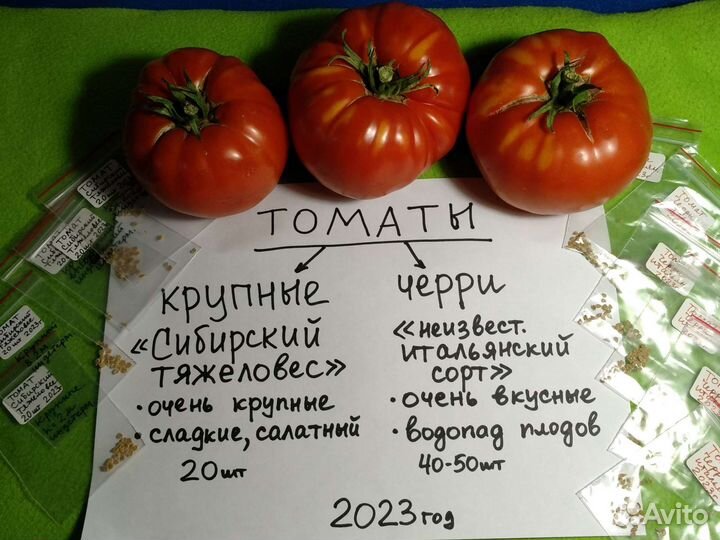 ТОМАТЫ
крупные
«Сибирский
тяжеловес»
• очень крупные
• сладкие, салатный
20 шт
черри
«неизвест.
итальянский
сорт»
• очень вкусные
• водопад плодов
40-50 шт
2023 год
ТОМАТ
Сибирский
Тяжеловес
20 шт 2023г.
Avito